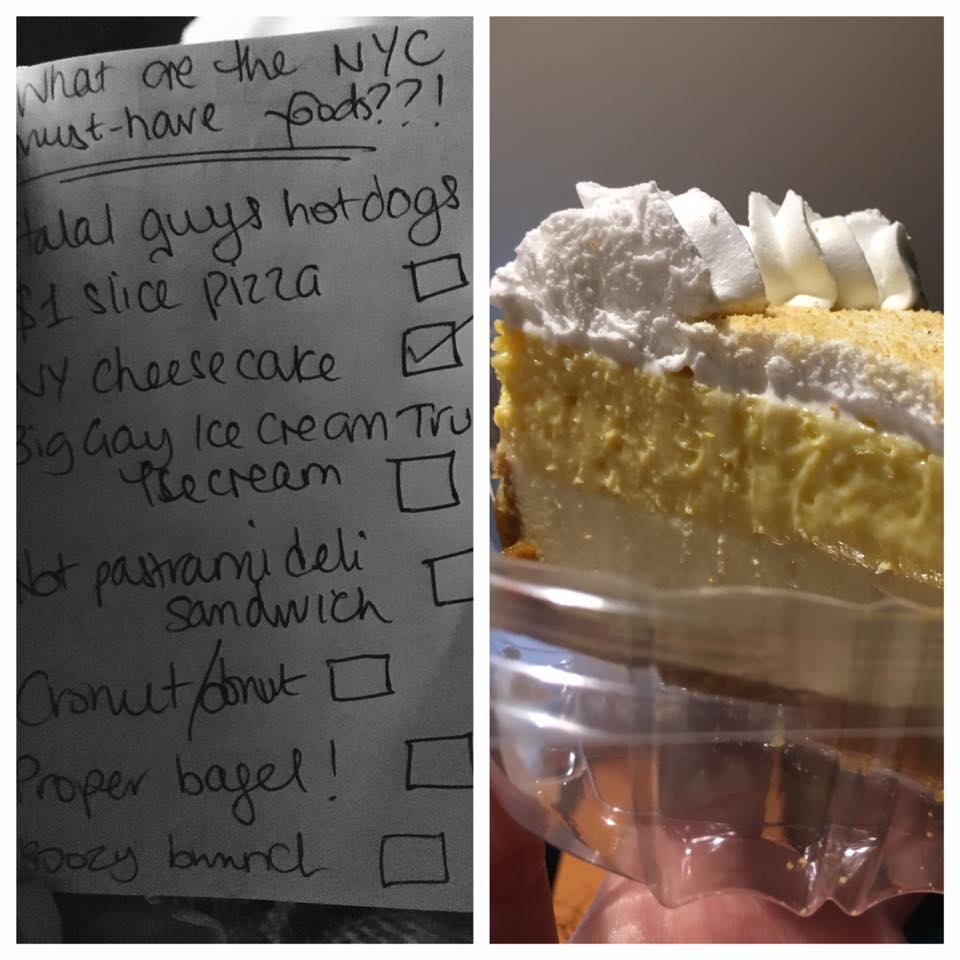 What are the NYC
must-have foods??!
Halal guys hotdogs
$1 slice pizza
NY cheesecake
Big Gay Ice Cream Tru
Icecream
Hot pastrami deli
sandwich
Cronut/donut
Proper bagel!
Boozy brunch